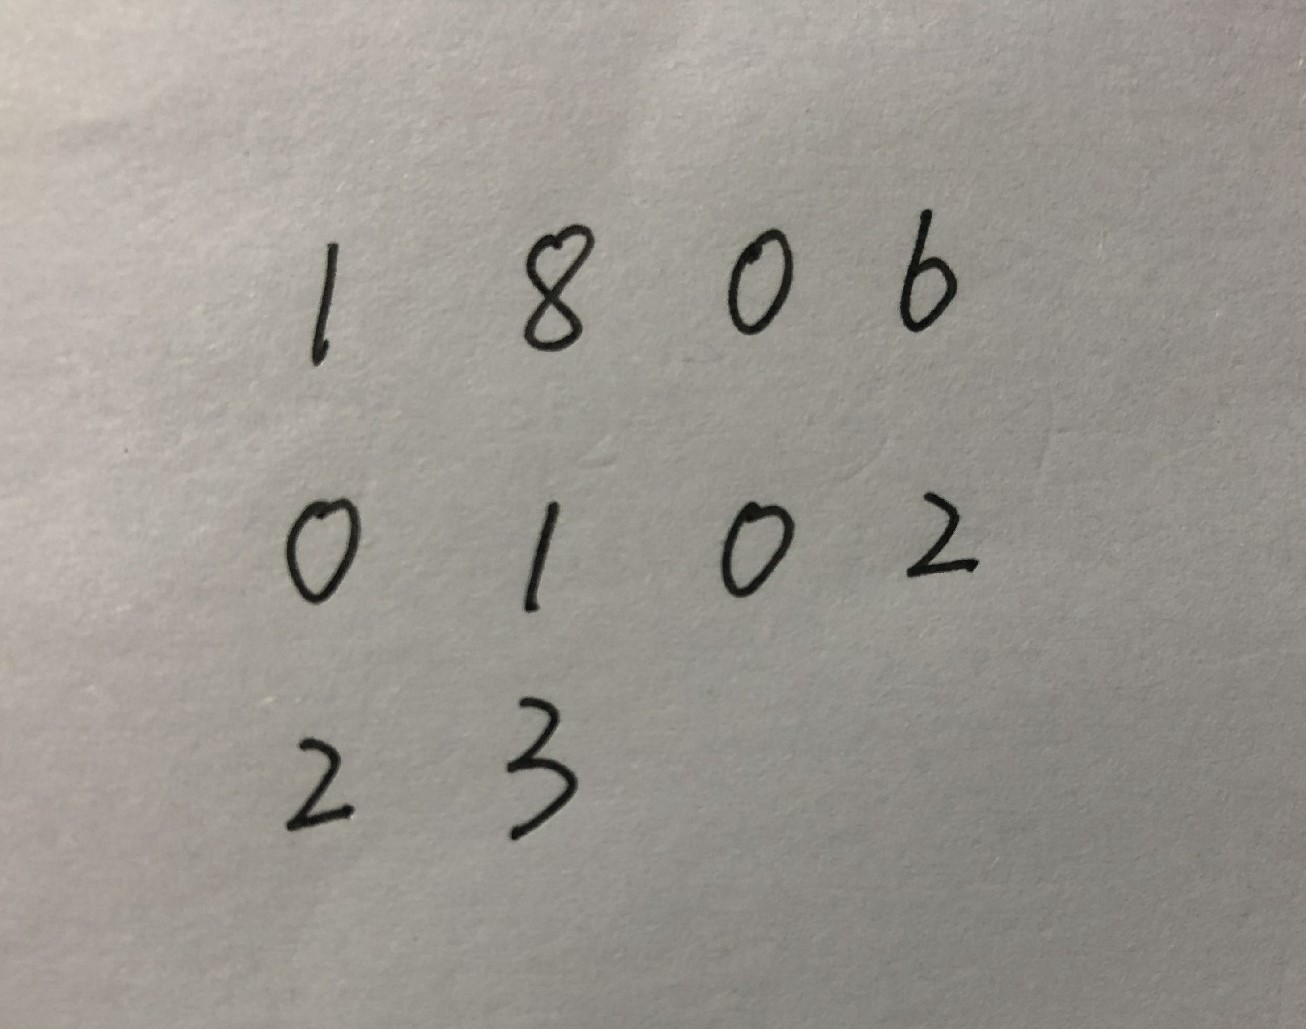 1 8 0 6
0 1 0 2
2 3